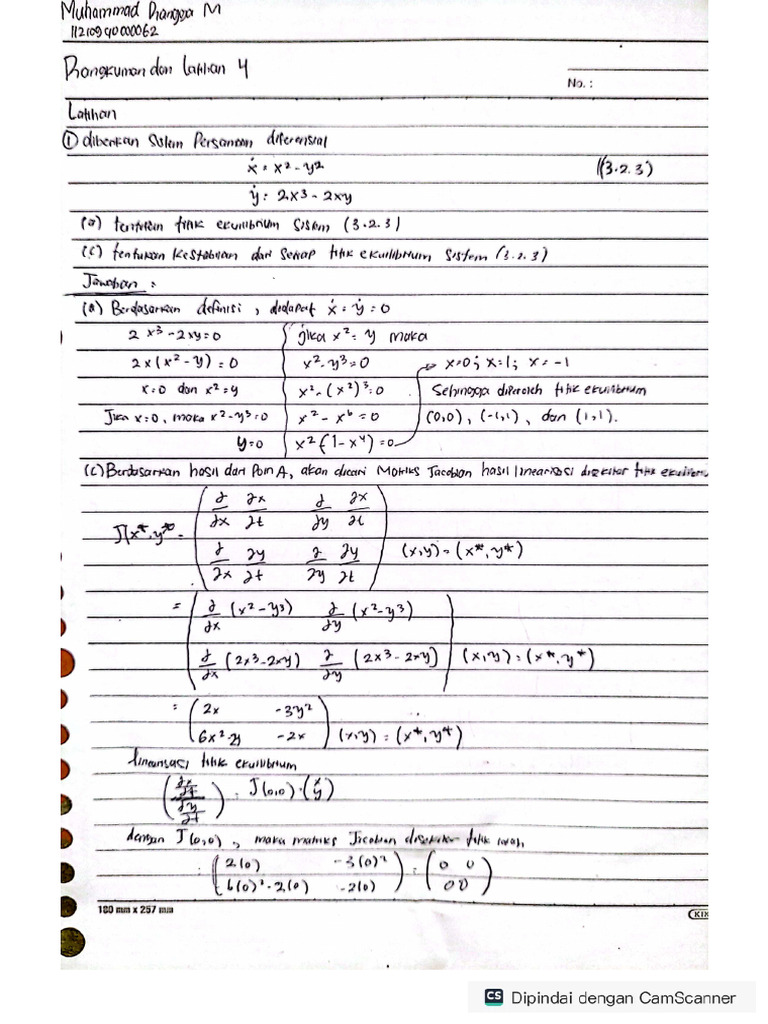 Muhammad Diangga M
11210940000062
Rangkuman dan Latihan 4
No. :
Latihan
① diberikan Sistem Persamaan diferensial
ẋ = x² - y² (3.2.3)
ẏ = 2x³ - 2xy
(a) tentukan titik ekuilibrium sistem (3.2.3)
(c) tentukan Kestabilan dari Setiap titik ekuilibrium Sistem (3.2.3)
Jawaban :
(a) Berdasarkan definisi, didapat ẋ = ẏ = 0
2x³ - 2xy = 0
2x(x² - y) = 0
x = 0 dan x² = y
Jika x = 0, maka x² - y³ = 0
y = 0
jika x² = y maka
x² - y³ = 0
x² - (x²)³ = 0
x² - x⁶ = 0
x²(1 - x⁴) = 0
x=0; x=1; x=-1
Sehingga diperoleh titik ekuilibrium
(0,0), (-1,1), dan (1,1).
(c) Berdasarkan hasil dari Poin A, akan dicari Matriks Jacobian hasil linearisasi disekitar titik
J(x*, y*) = ( ∂/∂x ∂x/∂t ∂/∂y ∂x/∂t
∂/∂x ∂y/∂t ∂/∂y ∂y/∂t ) (x,y) = (x*, y*)
= ( ∂/∂x (x² - y³) ∂/∂y (x² - y³)
∂/∂x (2x³ - 2xy) ∂/∂y (2x³ - 2xy) ) (x,y) = (x*, y*)
= ( 2x -3y²
6x² - 2y -2x ) (x,y) = (x*, y*)
linearisasi titik ekuilibrium
( ∂x/∂t
∂y/∂t ) = J(0,0) · ( x
y )
dengan J(0,0), maka matriks Jacobian disekitar titik
( 2(0) -3(0)²
6(0)² - 2(0) -2(0) ) = ( 0 0
0 0 )
180 mm x 257 mm
CS Dipindai dengan CamScanner